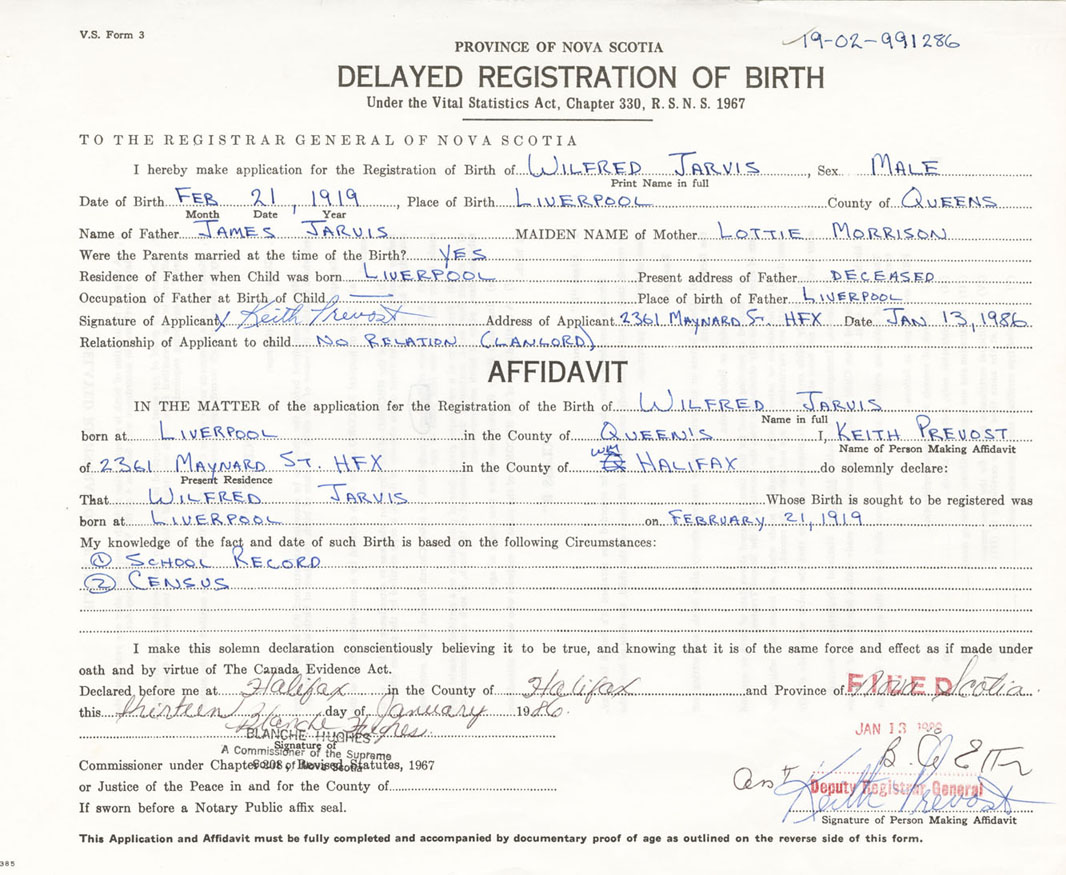 V.S. Form 3
19-02-991286
PROVINCE OF NOVA SCOTIA
DELAYED REGISTRATION OF BIRTH
Under the Vital Statistics Act, Chapter 330, R.S.N.S. 1967
TO THE REGISTRAR GENERAL OF NOVA SCOTIA
I hereby make application for the Registration of Birth of WILFRED JARVIS, Sex MALE
Print Name in full
Date of Birth FEB 21, 1919, Place of Birth LIVERPOOL County of QUEENS
Month Date Year
Name of Father JAMES JARVIS MAIDEN NAME of Mother LOTTIE MORRISON
Were the Parents married at the time of the Birth? YES
Residence of Father when Child was born LIVERPOOL Present address of Father DECEASED
Occupation of Father at Birth of Child — Place of birth of Father LIVERPOOL
Signature of Applicant X Keith Prevost Address of Applicant 2361 MAYNARD ST. HFX Date JAN 13, 1986
Relationship of Applicant to child NO RELATION (LANLORD)
AFFIDAVIT
IN THE MATTER of the application for the Registration of the Birth of WILFRED JARVIS
Name in full
born at LIVERPOOL in the County of QUEEN'S I, KEITH PREVOST
Name of Person Making Affidavit
of 2361 MAYNARD ST. HFX in the County of HALIFAX do solemnly declare:
Present Residence
That WILFRED JARVIS Whose Birth is sought to be registered was
born at LIVERPOOL on FEBRUARY 21, 1919
My knowledge of the fact and date of such Birth is based on the following Circumstances:
① SCHOOL RECORD
② CENSUS
I make this solemn declaration conscientiously believing it to be true, and knowing that it is of the same force and effect as if made under
oath and by virtue of The Canada Evidence Act.
Declared before me at Halifax in the County of Halifax and Province of Nova Scotia
FILED
this thirteen day of January 1986.
Blanche Hughes
BLANCHE HUGHES
JAN 13 1986
Signature of
A Commissioner of the Supreme
Court of Nova Scotia
Commissioner under Chapter 208, Revised Statutes, 1967
or Justice of the Peace in and for the County of
Deputy Registrar General
Keith Prevost
If sworn before a Notary Public affix seal.
Signature of Person Making Affidavit
This Application and Affidavit must be fully completed and accompanied by documentary proof of age as outlined on the reverse side of this form.
385